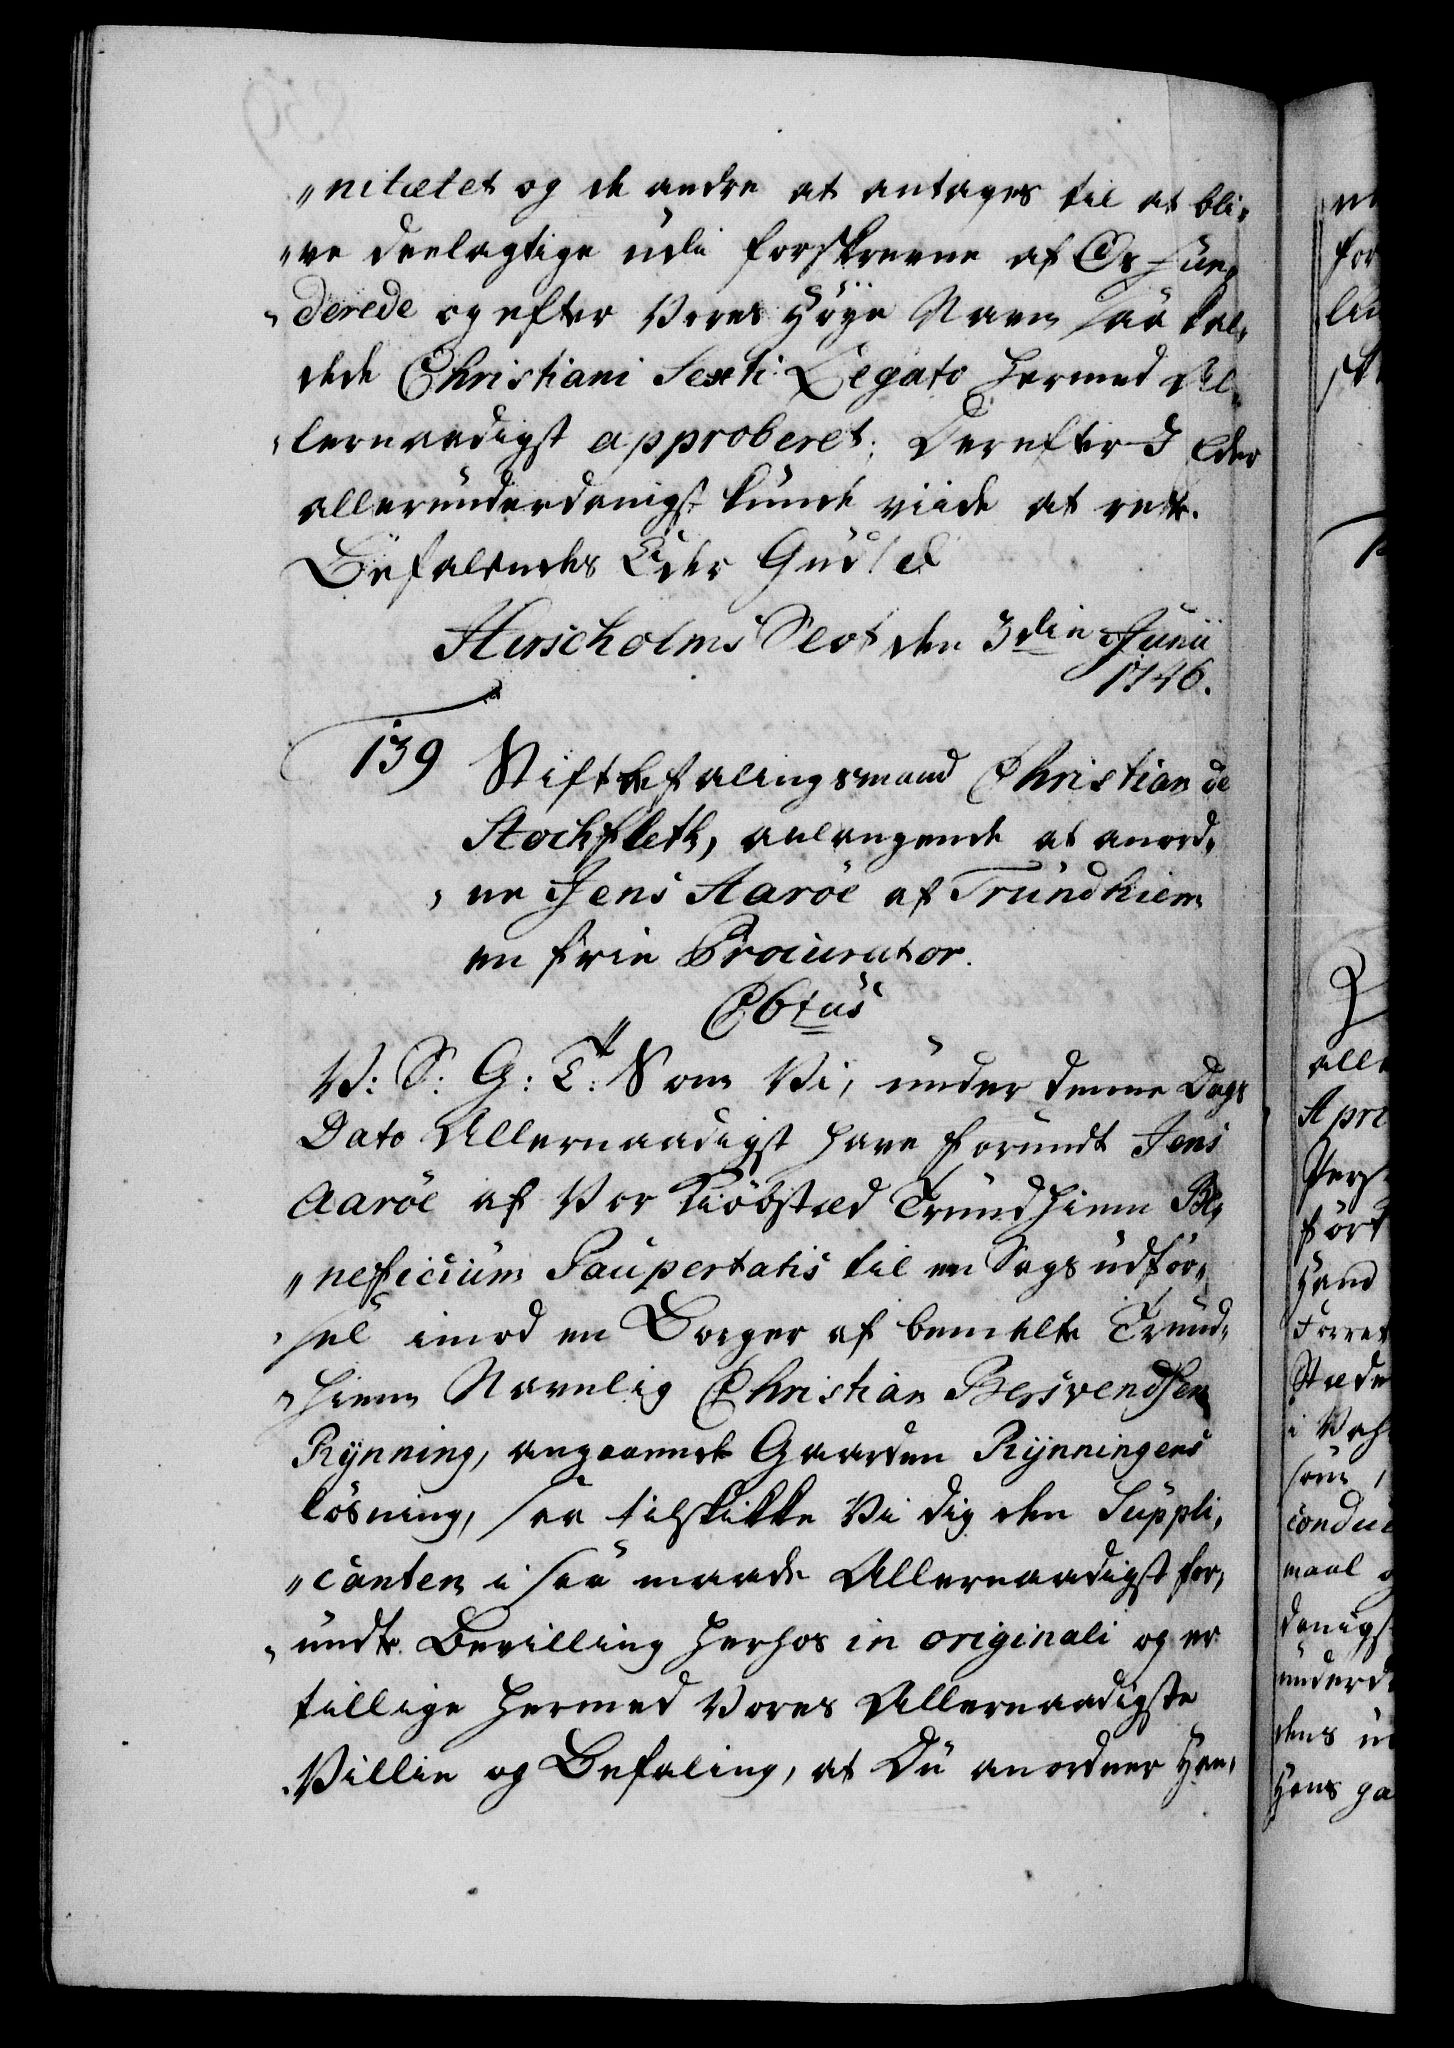 „nitetet og de andre at antages til at bli-
„ve deelagtige udi forskrevne af Os fun-
„derede og efter Vores Høye Navn saa kal-
dede Christiani Sexti Legato hermed Al-
„lernaadigst approberet. Derefter I Eder
allerunderdanigst kunde viide at rette.
Befalendes Eder Gud
Hirscholms Slot den 3die Junii
1746.
139 Stiftbefalingsmand Christian de
Stockfleth, anlangende at anord-
„ne Jens Aaröe af Trundhiem
en frie Procurator.
V: S: G: T: Som Vi, under denne Dags
Dato Allernaadigst have forundt Jens
Aaröe af Vor Kiöbstæd Trundhiem Be-
„neficium Paupertatis til en Sags udför-
„sel imod en Borger af bemelte Trund-
„hiem Navnlig Christian Bersvendsen
Rynning, angaaende Gaarden Rynningens
lösning, saa tilskikke Vi dig den Suppli-
„canten i saa maade Allernaadigst for-
„undte Bevilling herhos in originali og er
tillige hermed Vores Allernaadigste
Villie og Befaling, at Du anordner Han-
for
Apri
fört
Hand
Stæde
condui
maal
danigs
underd
dens
Hans